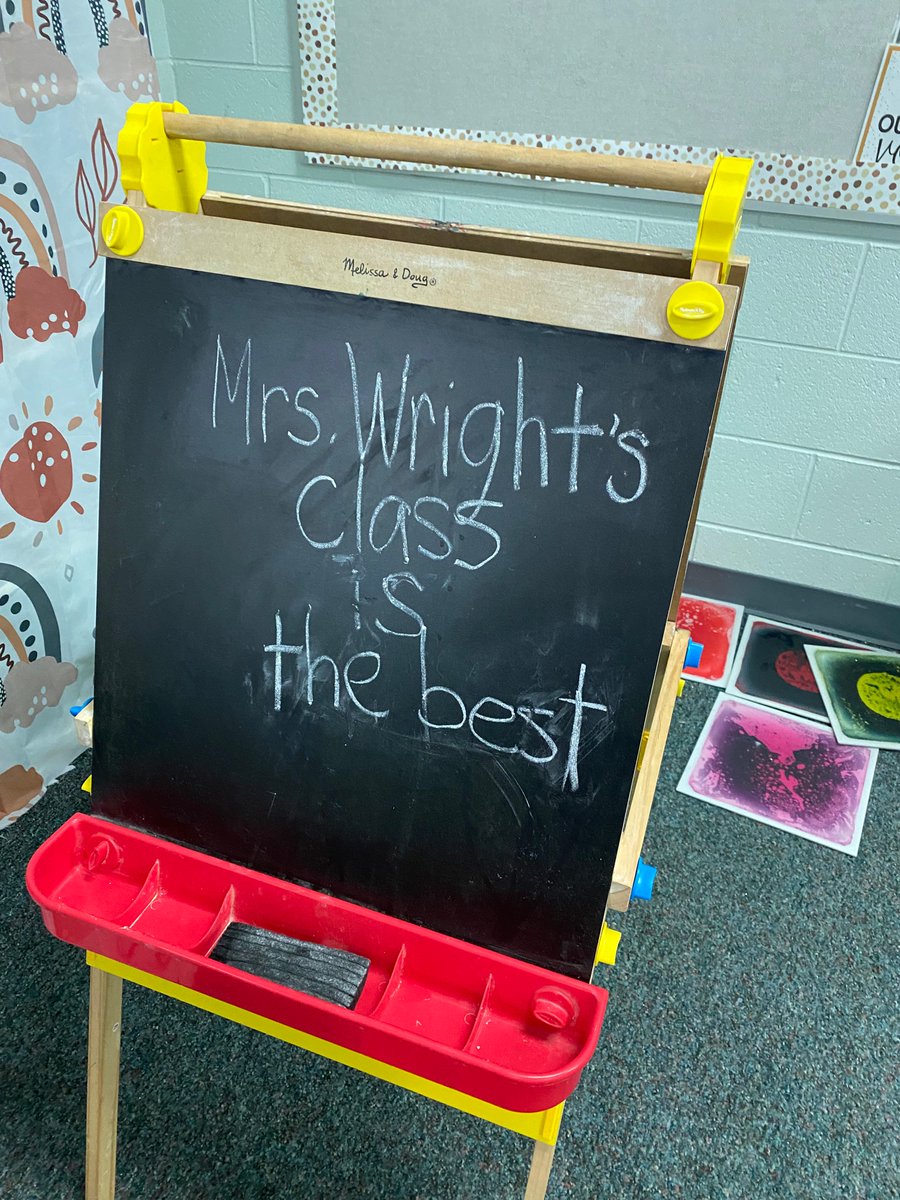 OU
Melissa & Doug®
Mrs. Wright's
class
is
the best